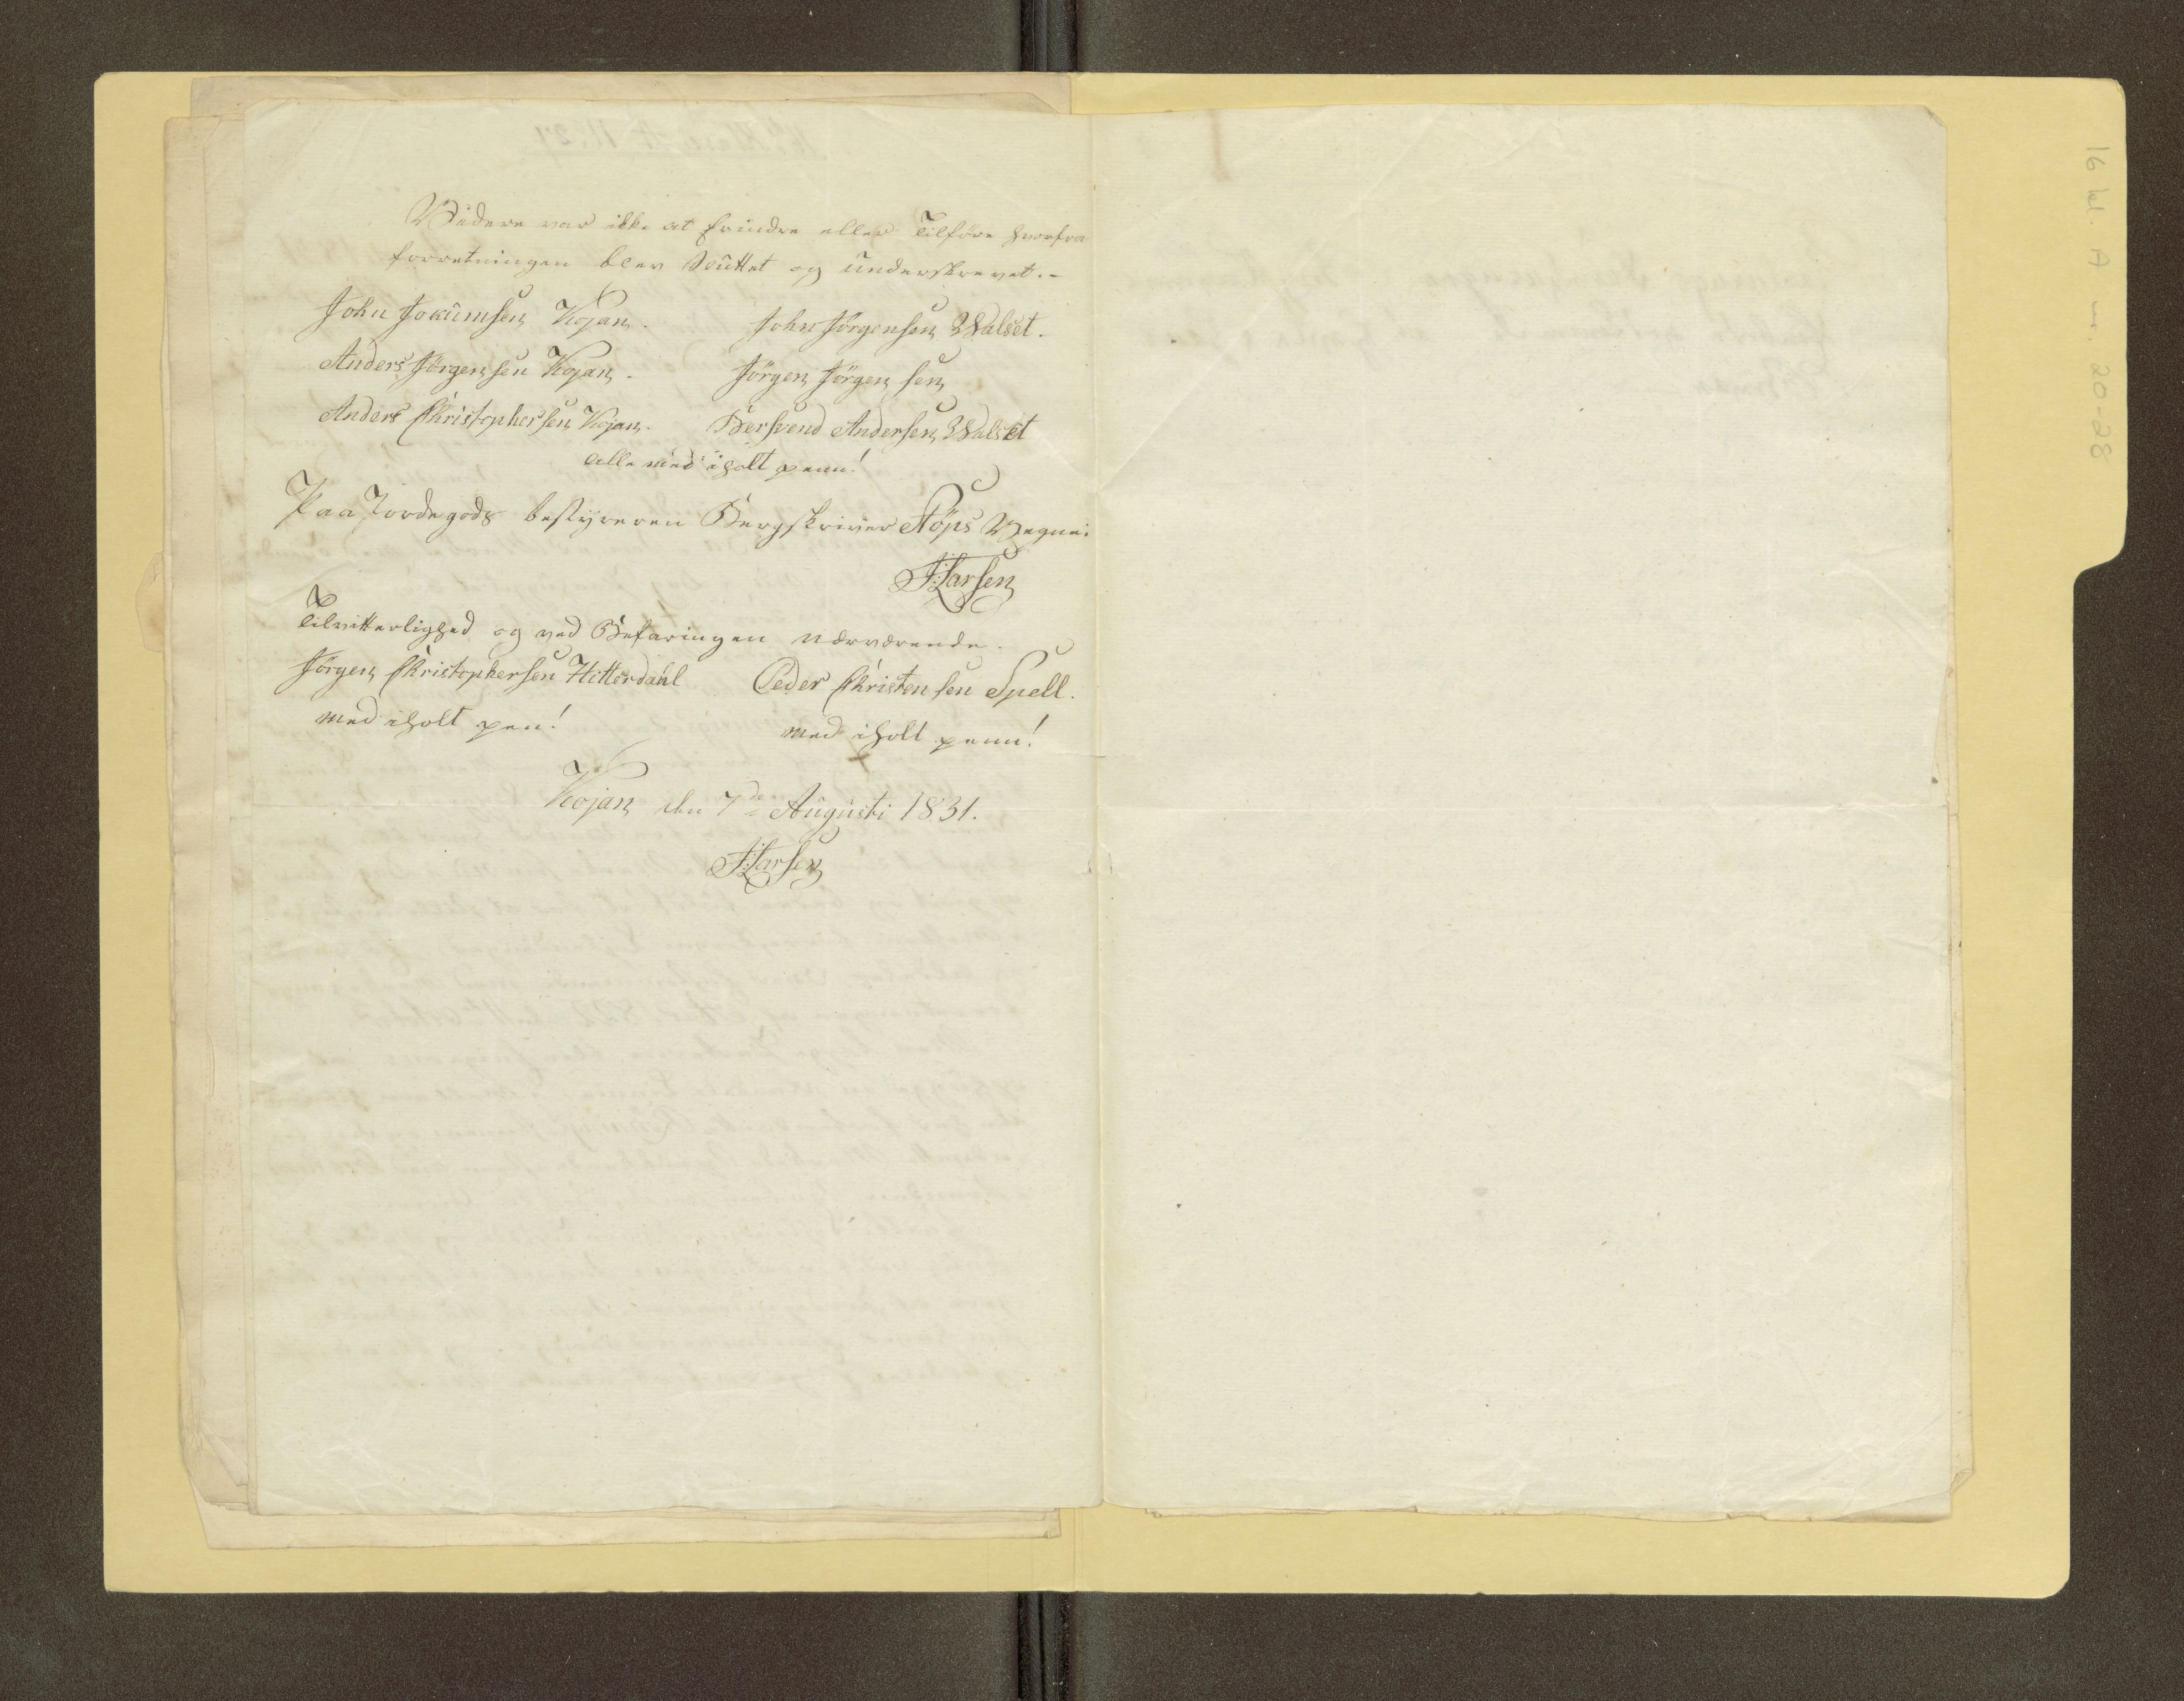 Videre var ikke at erindre eller Tilföre hvorfra
forretningen blev Sluttet og underskrevet.-
John Jokumsen Kojan. John Jörgensen Walset.
Anders Jörgensen Kojan. Jörgen Jörgensen
Anders Christophersen Kojan. Bersvend Andersen Walset
alle med iholt penn!
Paa Jordegods bestyreren Bergskriver Støps Vegne:
J: Larsen
Tilvitterlighed og ved Befaringen nærværende.
Jörgen Christophersen Hitterdahl Peder Christensen Spell.
med iholt pen! med iholt penn!
Kojan den 7de Augusti 1831.
J: Larsen
16 kl. A nr. 20-28